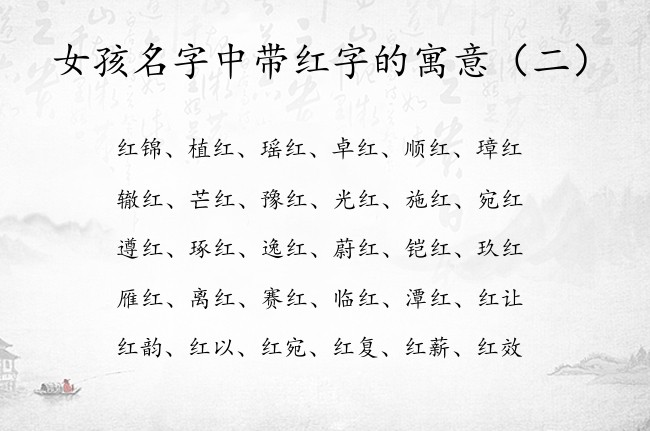 女孩名字中带红字的寓意（二）
红锦、植红、瑶红、卓红、顺红、璋红
辙红、芒红、豫红、光红、施红、宛红
遵红、琢红、逸红、蔚红、铠红、玖红
雁红、离红、赛红、临红、潭红、红让
红韵、红以、红宛、红复、红薪、红效